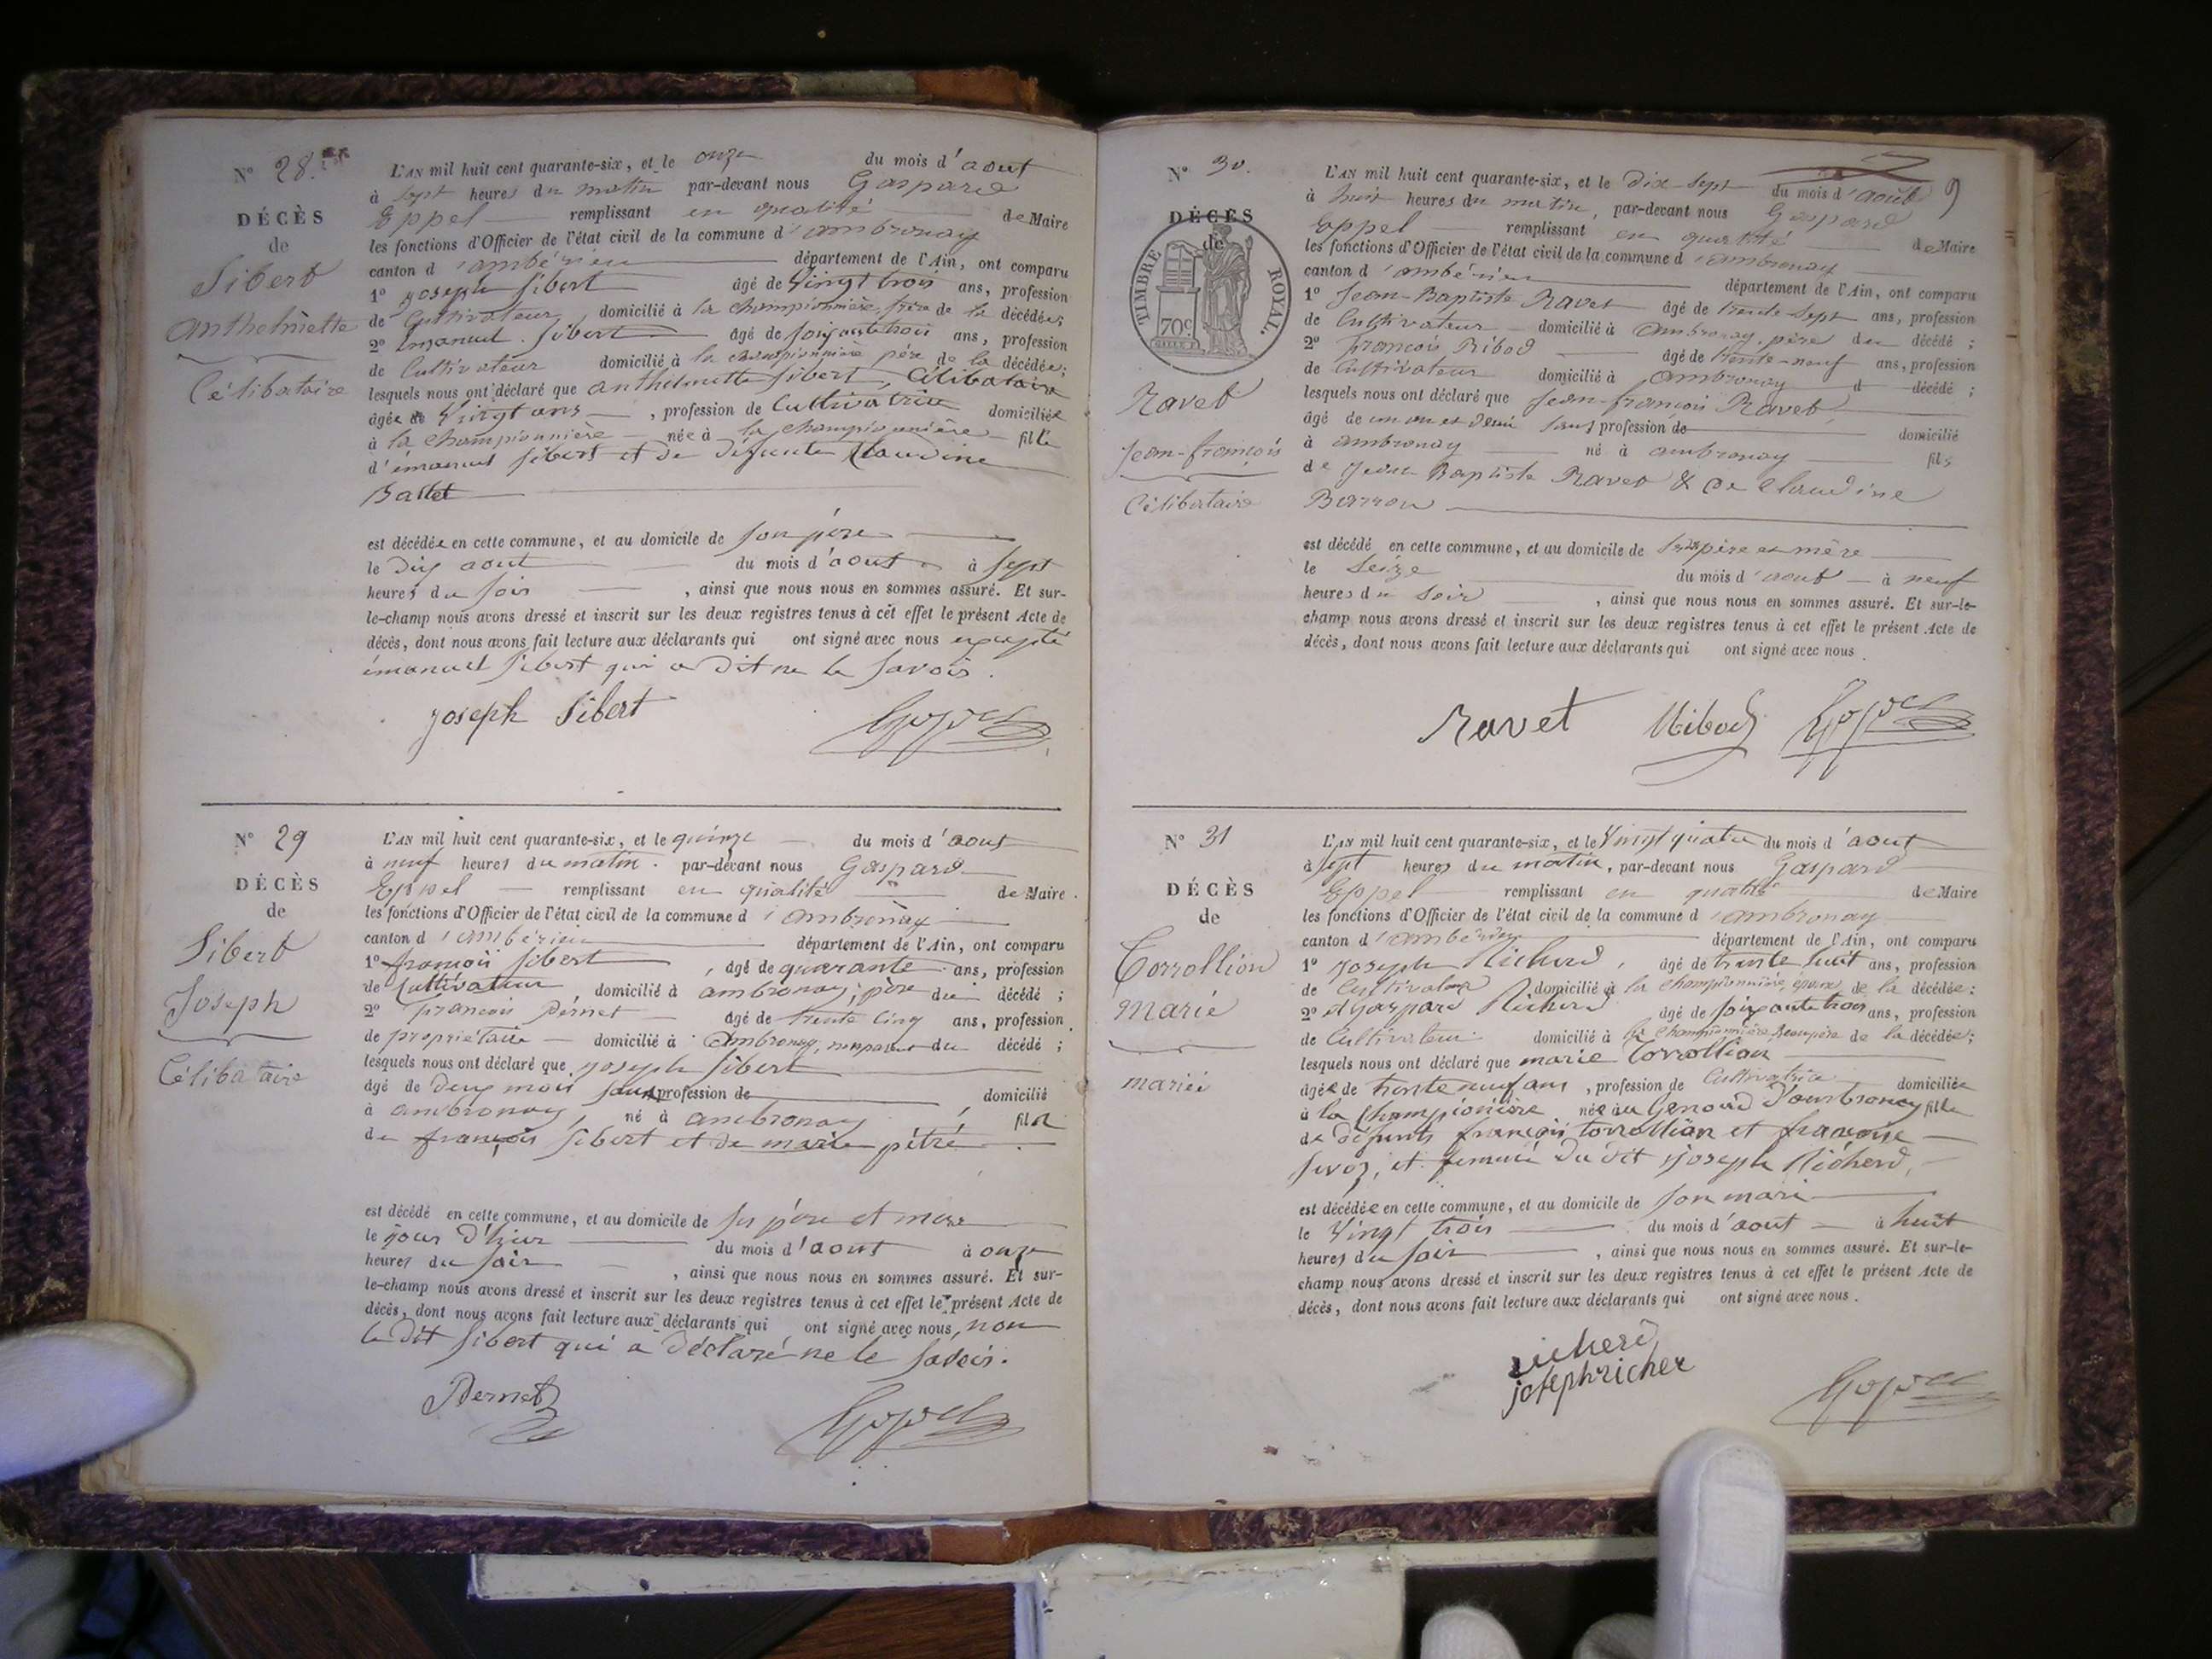 N° 28.
DÉCÈS
de
Sibert
anthelmette
Célibataire
L'AN mil huit cent quarante-six, et le onze du mois d'aout
à sept heures du matin par-devant nous Gaspard
Eppel remplissant en qualité de Maire
les fonctions d'Officier de l'état civil de la commune d'ambronay
canton d'ambérieu département de l'Ain, ont comparu
1° joseph Sibert âgé de Vingt trois ans, profession
de Cultivateur, domicilié à la championnière, frère de la décédée;
2° émanuel Sibert âgé de soixante trois ans, profession
de Cultivateur domicilié à la championnière père de la décédée;
lesquels nous ont déclaré que anthelmette Sibert, Célibataire
âgée de Vingt ans, profession de Cultivatrice domiciliée
à la championnière née à la championnière fille
d'émanuel Sibert et de défunte Claudine
Ballet
est décédée en cette commune, et au domicile de son père
le dix aout du mois d'aout à sept
heures du soir, ainsi que nous nous en sommes assuré. Et sur-
le-champ nous avons dressé et inscrit sur les deux registres tenus à cet effet le présent Acte de
décès, dont nous avons fait lecture aux déclarants qui ont signé avec nous excepté
émanuel Sibert qui a dit ne le savoir.
joseph Sibert Eppel
N° 29
DÉCÈS
de
Sibert
Joseph
Célibataire
L'AN mil huit cent quarante-six, et le quinze du mois d'aout
à neuf heures du matin. par-devant nous Gaspard
Eppel remplissant en qualité de Maire.
les fonctions d'Officier de l'état civil de la commune d'ambronay
canton d'ambérieu département de l'Ain, ont comparu
1° françois Sibert, âgé de quarante ans, profession
de Cultivateur, domicilié à ambronay, père du décédé;
2° françois Pernet âgé de trente cinq ans, profession
de propriétaire domicilié à Ambronay, non parent du décédé;
lesquels nous ont déclaré que joseph Sibert
âgé de deux mois sans profession de domicilié
à ambronay, né à ambronay, fils
de françois Sibert et de marie pétré
est décédé en cette commune, et au domicile de ses père et mère
le jour d'hier du mois d'aout à onze
heures du soir, ainsi que nous nous en sommes assuré. Et sur-
le-champ nous avons dressé et inscrit sur les deux registres tenus à cet effet le présent Acte de
décès, dont nous avons fait lecture aux déclarants qui ont signé avec nous, non
le dit Sibert qui a déclaré ne le savoir.
Pernet Eppel
9
N° 30.
DÉCÈS
de
TIMBRE ROYAL.
70c
Ravet
Jean-françois
Célibataire
L'AN mil huit cent quarante-six, et le dix-sept du mois d'août
à huit heures du matin, par-devant nous Gaspard
Eppel remplissant en qualité de Maire
les fonctions d'Officier de l'état civil de la commune d'ambronay
canton d'ambérieu département de l'Ain, ont comparu
1° Jean-Baptiste Ravet âgé de trente-sept ans, profession
de Cultivateur domicilié à Ambronay, père du décédé;
2° françois Ribod âgé de trente-neuf ans, profession
de Cultivateur domicilié à Ambronay d décédé;
lesquels nous ont déclaré que Jean-françois Ravet,
âgé de un an et demi sans profession de domicilié
à ambronay né à ambronay fils
de Jean Baptiste Ravet & de Claudine
Barron
est décédé en cette commune, et au domicile de ses père et mère
le Seize du mois d'aout à neuf
heures du Soir, ainsi que nous nous en sommes assuré. Et sur-le-
champ nous avons dressé et inscrit sur les deux registres tenus à cet effet le présent Acte de
décès, dont nous avons fait lecture aux déclarants qui ont signé avec nous.
Ravet Ribod Eppel
N° 31
DÉCÈS
de
Corrollion
marie
mariée
L'AN mil huit cent quarante-six, et le Vingt quatre du mois d'aout
à sept heures du matin, par-devant nous Gaspard
Eppel remplissant en qualité de Maire
les fonctions d'Officier de l'état civil de la commune d'ambronay
canton d'ambérieu département de l'Ain, ont comparu
1° joseph Richerd, âgé de trente huit ans, profession
de Cultivateur domicilié à la championnière, époux de la décédée;
2° et Gaspard Richerd âgé de soixante trois ans, profession
de Cultivateur domicilié à la championnière, Beaupère de la décédée;
lesquels nous ont déclaré que marie Corrollion
âgée de trente neuf ans, profession de Cultivatrice domiciliée
à la Championière née au Genoud d'ambronay fille
de défunts françois Corrollion et françoise
Servoz, et femme du dit joseph Richerd,
est décédée en cette commune, et au domicile de son mari
le Vingt trois du mois d'aout à huit
heures du soir, ainsi que nous nous en sommes assuré. Et sur-le-
champ nous avons dressé et inscrit sur les deux registres tenus à cet effet le présent Acte de
décès, dont nous avons fait lecture aux déclarants qui ont signé avec nous.
richerd
joseph richer Eppel